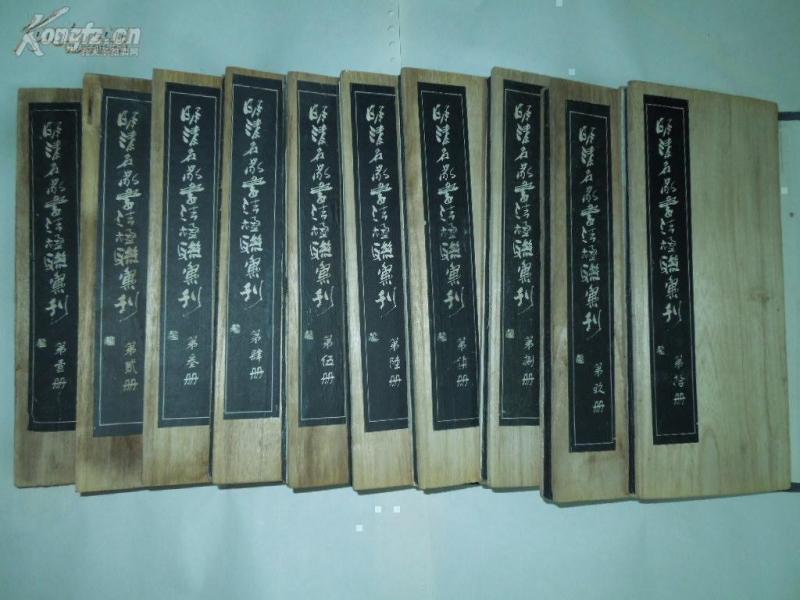 Kongfz.cn
明清名家書法楹聯彙刊
第壹册
明清名家書法楹聯彙刊
第貳册
明清名家書法楹聯彙刊
第叁册
明清名家書法楹聯彙刊
第肆册
明清名家書法楹聯彙刊
第伍册
明清名家書法楹聯彙刊
第陸册
明清名家書法楹聯彙刊
第柒册
明清名家書法楹聯彙刊
第捌册
明清名家書法楹聯彙刊
第玖册
明清名家書法楹聯彙刊
第拾册